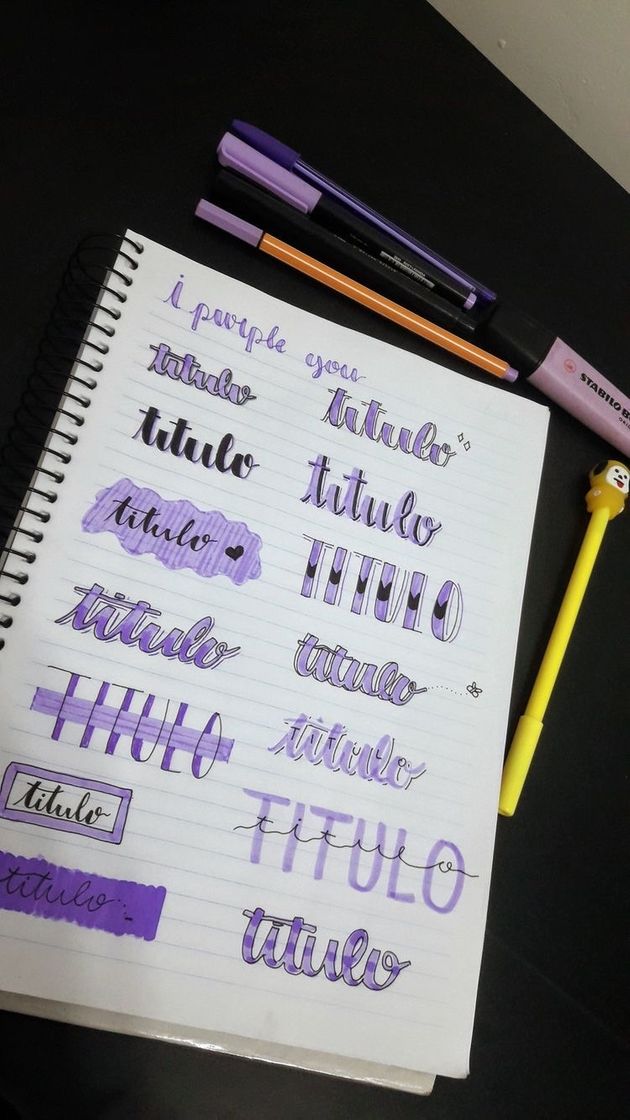 i purple you
titulo
titulo
titulo
titulo
titulo
TITULO
titulo
titulo
TITULO
titulo
titulo
TITULO
titulo
titulo
titulo
STABILO